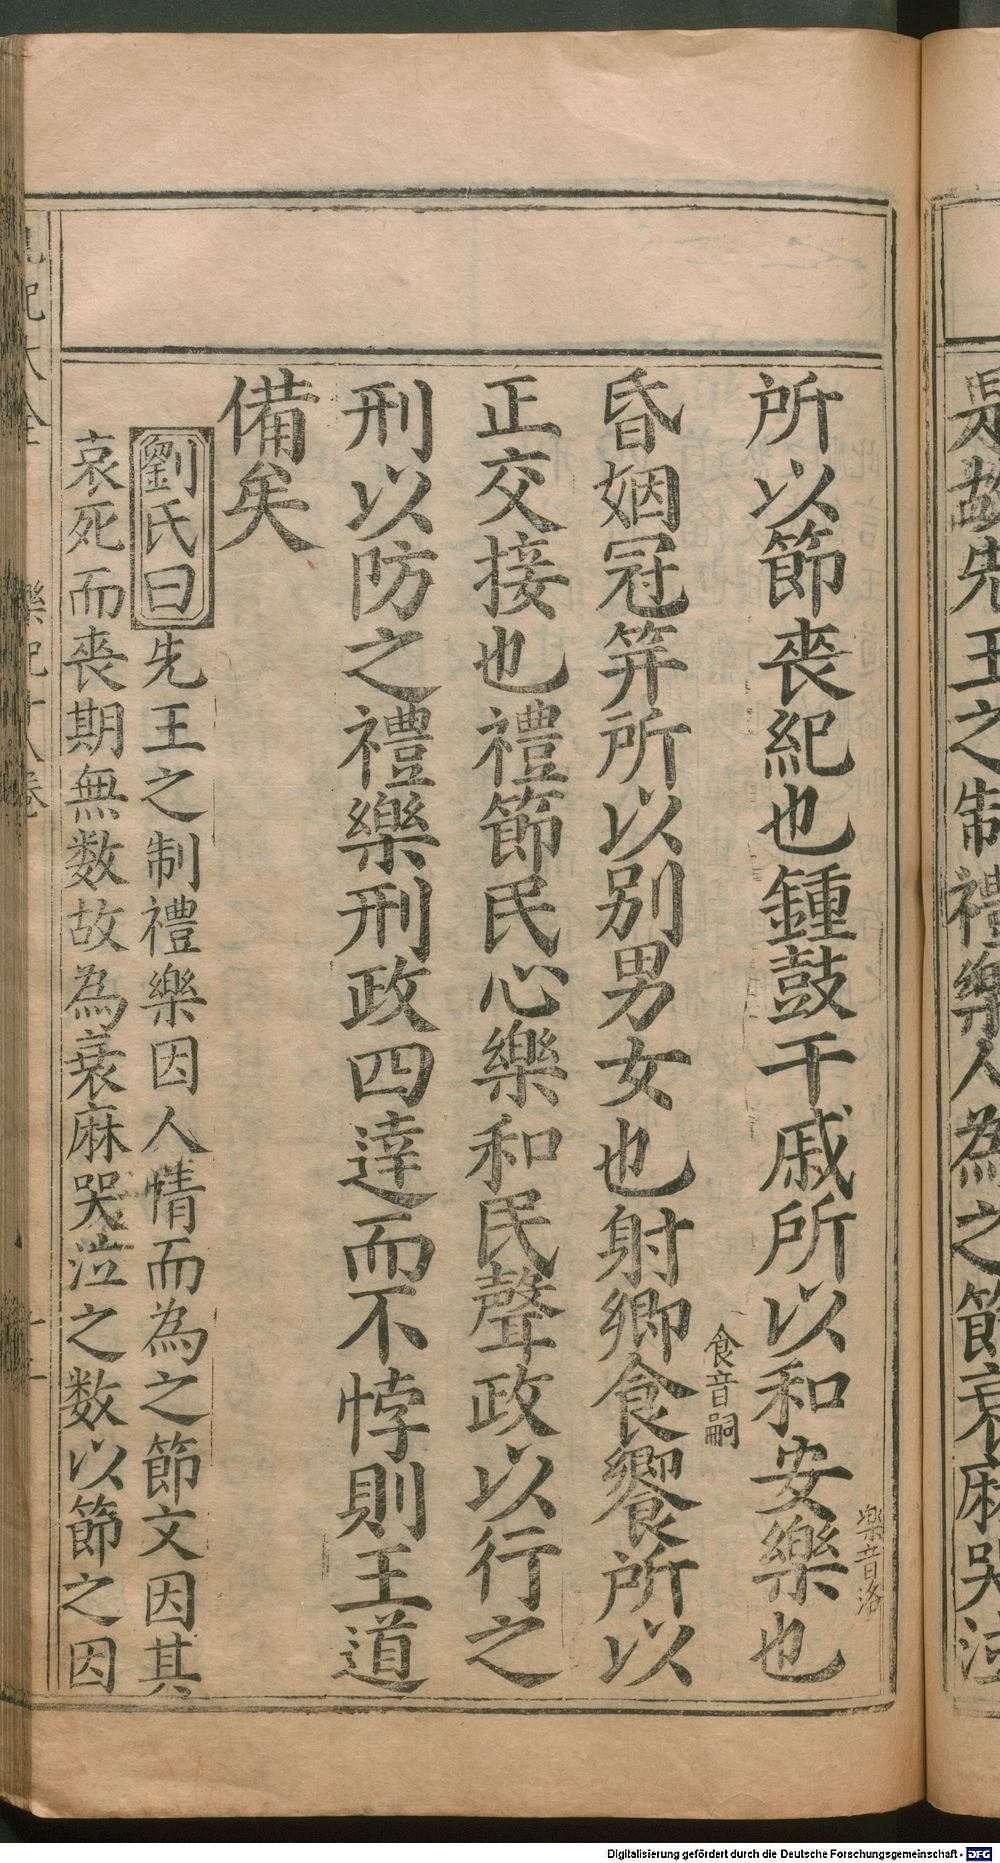 是故先王之制禮樂人為之節衰麻哭泣
所以節喪紀也鍾鼓干戚所以和安樂也
樂音洛
昏姻冠筓所以别男女也射鄉食饗所以
食音嗣
正交接也禮節民心樂和民聲政以行之
刑以防之禮樂刑政四達而不悖則王道
備矣
劉氏曰先王之制禮樂因人情而為之節文因其
哀死而喪期無数故為衰麻哭泣之数以節之因
記大全 樂記十八卷
Digitalisierung gefördert durch die Deutsche Forschungsgemeinschaft - DFG